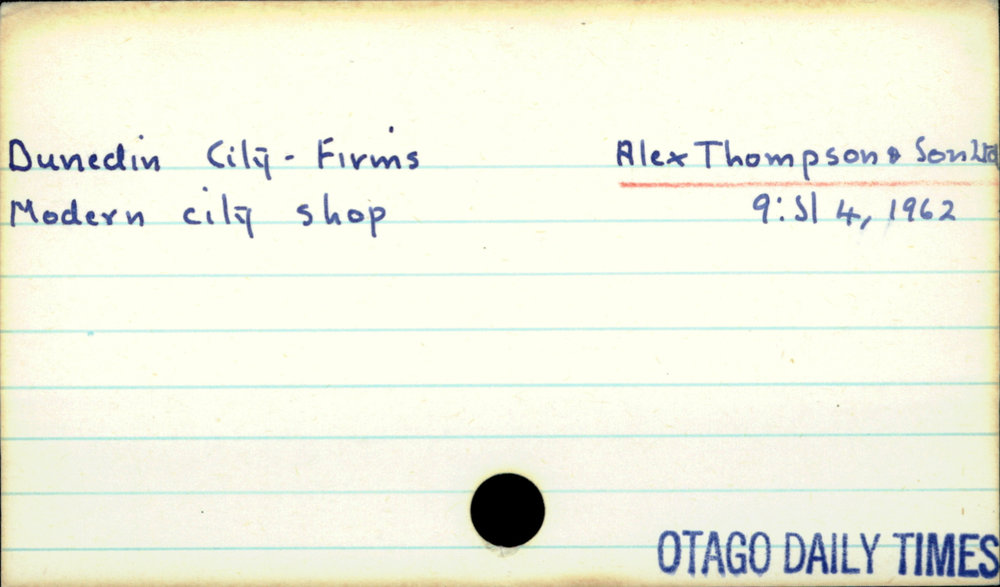 Dunedin City - Firms Alex Thompson & Son Ltd
Modern city shop 9: Jl 4, 1962
OTAGO DAILY TIMES